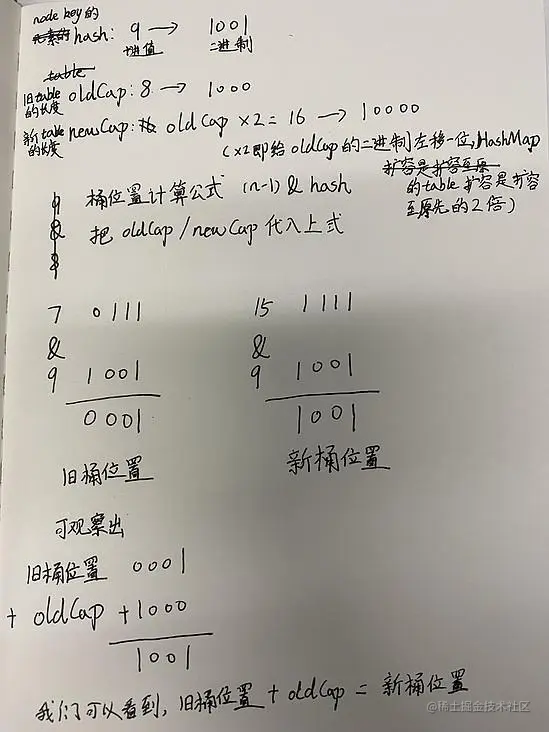 node key的
hash: 9 → 1001
十进值 二进制
table
旧table的长度 oldCap: 8 → 1000
新table的长度 newCap: oldCap ×2 = 16 → 10000
(×2即给oldCap的二进制左移一位,HashMap
扩容是扩容至原
的table扩容是扩容
至原先的2倍)
桶位置计算公式 (n-1) & hash
把 oldCap / newCap 代入上式
7 0111 15 1111
& &
9 1001 9 1001
0001 1001
旧桶位置 新桶位置
可观察出
旧桶位置 0001
+ oldCap +1000
1001
我们可以看到, 旧桶位置 + oldCap = 新桶位置
@稀土掘金技术社区